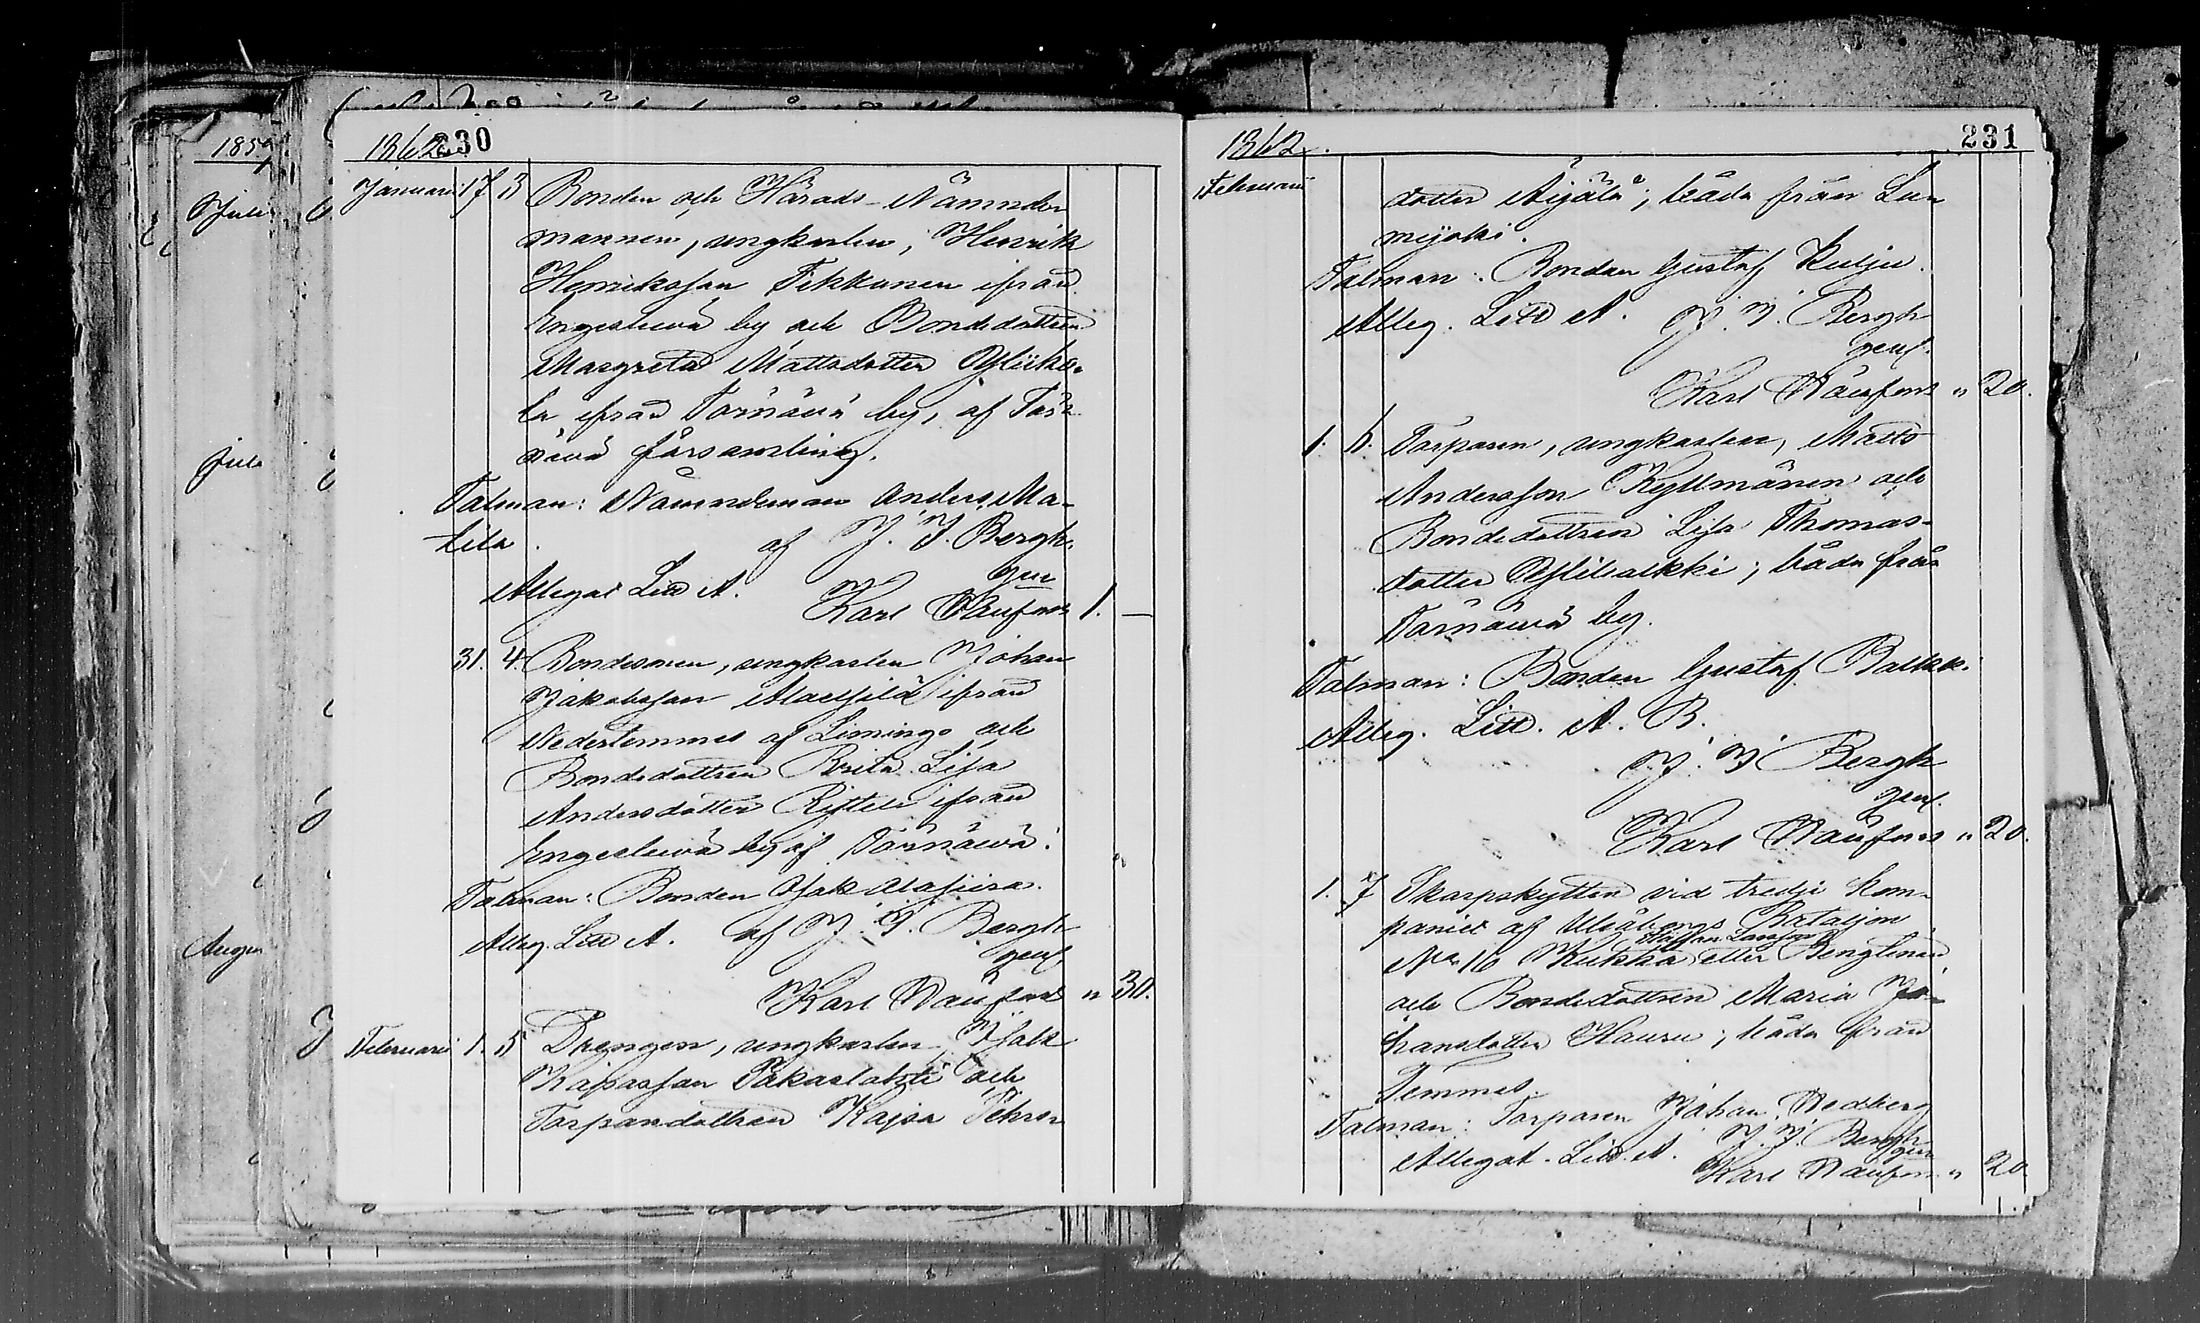 1859
Juli
Juli
Augu
1862. 230
Januari 17 3 Bonden och Härads-Nämnde
mannen, ungkarlen, Henrik
Henriksson Tikkanen ifrån
Engeslevä by och Bondedottren
Margreta Mattsdotter Yliika-
la ifrån Tornävä by, af Tor-
nävä församling.
Talman: Nämndeman Anders Ma-
tila. af J. J. Bergh.
gm
Allegat Litt A. Karl Waufors 1. —
31. 4. Bondesonen, ungkarlen Johan
Jakobsson ifrån
Nedertemmes af Limingo och
Bondedottren Brita Lisa
Andersdotter Ryttele ifrån
Engeslevä by af Tornäwä.
Talman: Bonden Isak
Alleg. Litt A. af J. J. Bergh
gm
Karl Waufors " 30.
Februari 1. 5 Drengen, ungkarlen Isak
Kajsasson och
Torparedottren Kajsa
1862. 231
Februari dotter Äijälä, båda från Lu-
mijoki.
Talman: Bonden Gustaf Kulju.
Alleg. Litt A. J. J. Bergh
gm.
Karl Waufors " 20.
1. 6. Torparen, ungkarlen, Matts
Andersson Kyllmänen och
Bondedottren Lisa Thomas-
dotter Ylibalkki; båda från
Tornäwä by.
Talman: Bonden Gustaf Balkk.
Alleg. Litt. A. B.
J. J. Bergh
gm.
Karl Waufors " 20.
1. 7 Skarpskytten vid tredje Kom-
paniet af Uleåborgs Bataljon
Staffan Larsson
No 16 Kukka eller Benglenen
och Bondedottren Maria Jo-
hansdotter Hauru; båda från
Temmes.
Talman: Torparen Johan Wedberg
Allegat. Litt. A. J. J. Bergh
gm
Karl Waufors " 20